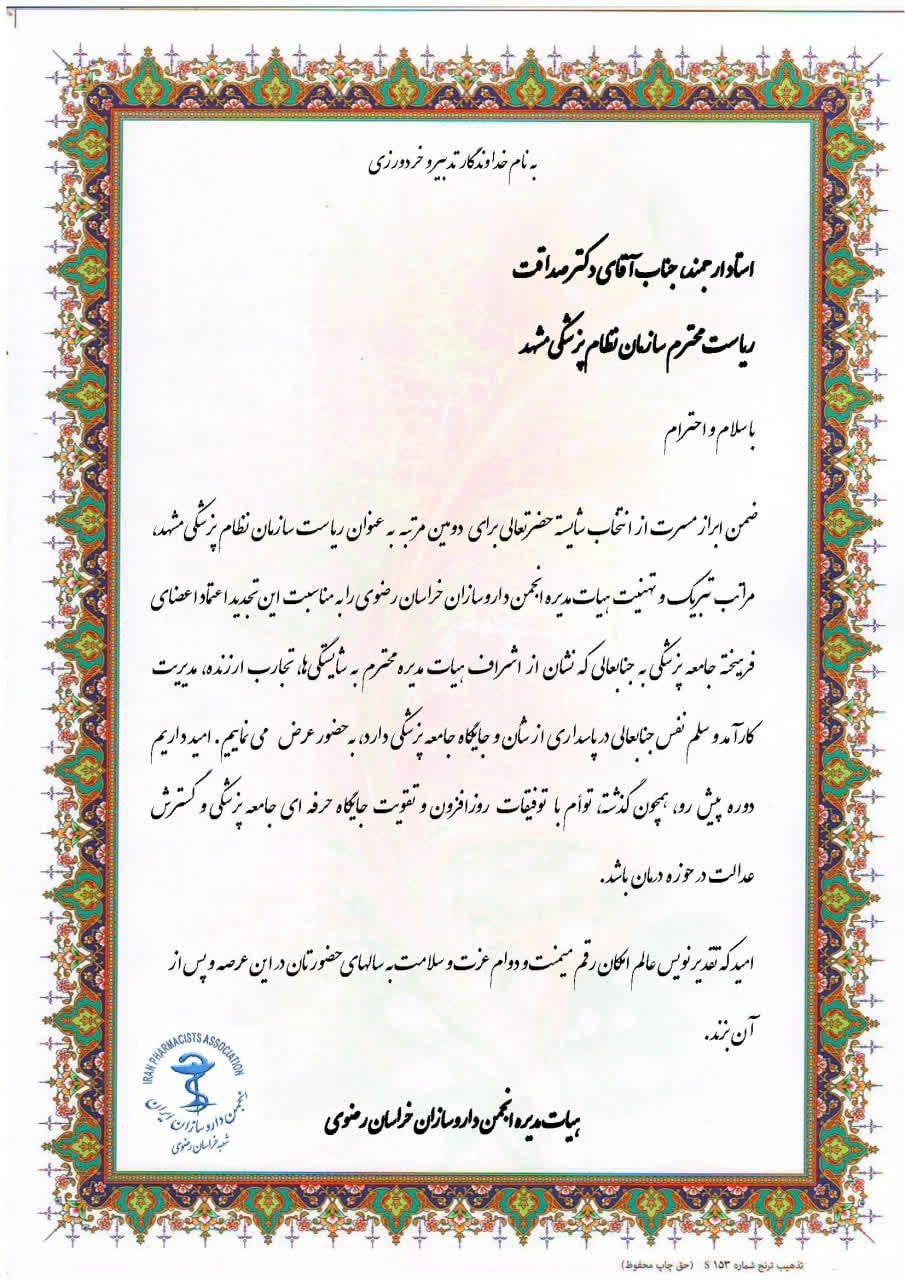 به نام خداوندگار تدبیر و خردورزی
استاد ارجمند، جناب آقای دکتر صداقت
ریاست محترم سازمان نظام پزشکی مشهد
با سلام و احترام
ضمن ابراز مسرت از انتخاب شایسته حضرتعالی برای دومین مرتبه به عنوان ریاست سازمان نظام پزشکی مشهد،
مراتب تبریک و تهنیت هیات مدیره انجمن داروسازان خراسان رضوی را به مناسبت این تجدید اعتماد اعضای
فرهیخته جامعه پزشکی به جنابعالی که نشان از اشراف هیات مدیره محترم به شایستگی‌ها، تجارب ارزنده، مدیریت
کارآمد و سلم نفس جنابعالی در پاسداری از شأن و جایگاه جامعه پزشکی دارد، به حضور عرض می نماییم. امید داریم
دوره پیش رو، همچون گذشته، توأم با توفیقات روزافزون و تقویت جایگاه حرفه ای جامعه پزشکی و گسترش
عدالت در حوزه درمان باشد.
امید که تقدیرنویس عالم امکان رقم میمنت و دوام عزت و سلامت به سالهای حضورتان در این عرصه و پس از
آن بزند.
هیات مدیره انجمن داروسازان خراسان رضوی
IRAN PHARMACISTS ASSOCIATION
انجمن داروسازان ایران
شعبه خراسان رضوی
تذهیب ترنج شماره S ۱۵۳ (حق چاپ محفوظ)